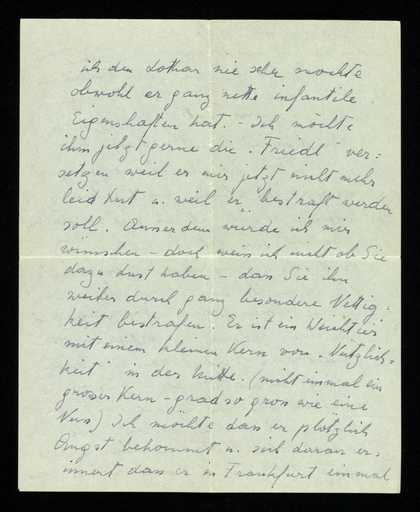 ich den Lothar nie sehr mochte
obwohl er ganz nette infantile
Eigenschaften hat. - Ich möchte
ihm jetzt gerne die "Friedl" ver=
setzen weil er mir jetzt nicht mehr
leid tut u. weil er bestraft werden
soll. Ausserdem würde ich mir
wünschen - doch weiss ich nicht ob Sie
dazu Lust haben - dass Sie ihn
weiter durch ganz besondere
keit bestrafen. Er ist ein
mit einem kleinen Kern von "Nützlich=
keit" in der Mitte. (nicht einmal ein
grosser Kern - grad so gross wie eine
Nuss) Ich möchte dass er plötzlich
Angst bekommt u. sich daran er=
innert dass er in Frankfurt einmal